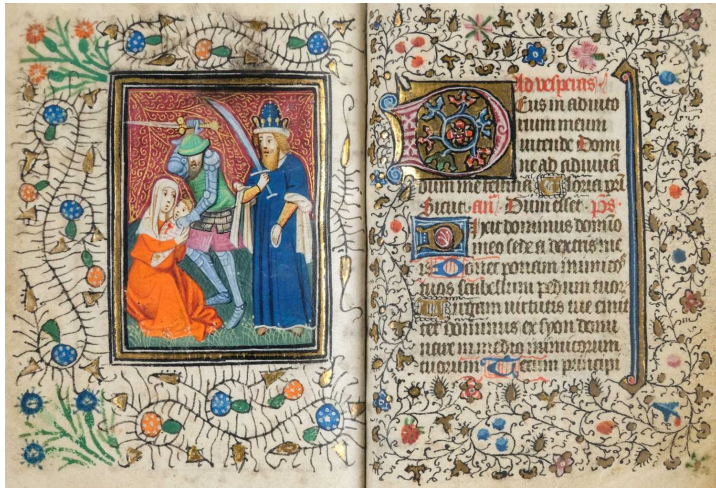 Ad vesperas
Deus in adiuto
rium meum
intende Domi
ne ad adiuuā
dum me festina Gloria pri
Sicut. añ. Dum esset. ps
Dixit dominus domīo
meo sede a dextris me
is Donec ponam inimicos
tuos scabellum pedum tuor
Uirgam uirtutis tue emit
tet dominus ex syon domi
nare in medio inimicorum
tuorum Tecum principi